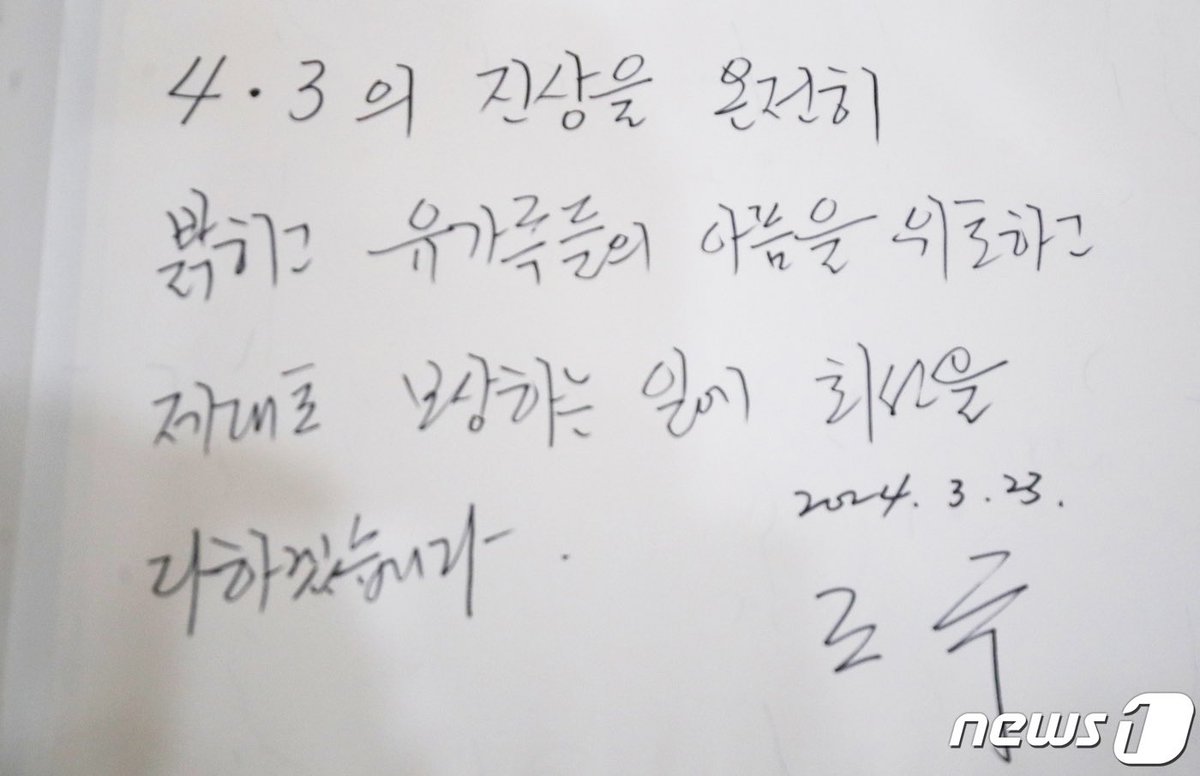 4·3의 진상을 온전히
밝히고 유가족들의 아픔을 위로하고
제대로 보상하는 일에 최선을
다하겠습니다.
2024. 3. 23.
조국
news1